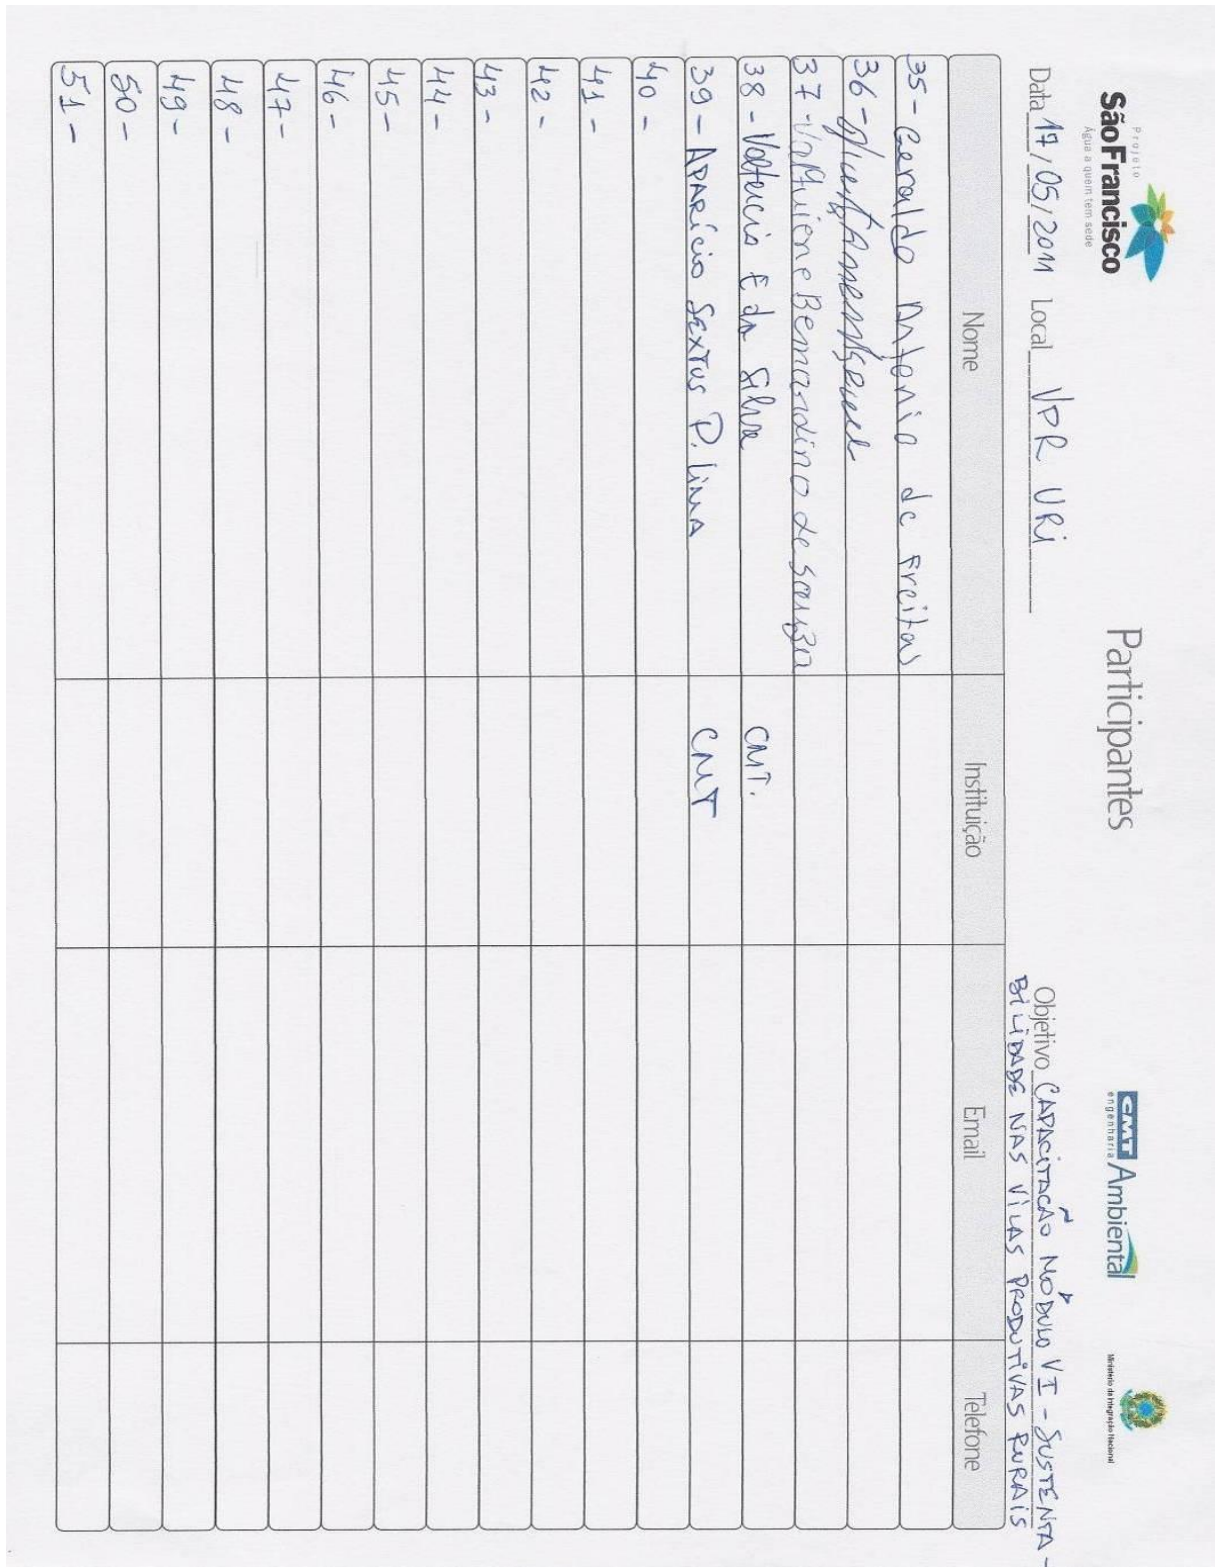 Projeto
São Francisco
Água a quem tem sede
Participantes
CMT Ambiental
engenharia
Ministério da Integração Nacional
Data 17/05/2011 Local VPR URi
Objetivo CAPACITAÇÃO MÓDULO VI - SUSTENTA-
BiLiDADE NAS ViLAS PRODUTiVAS RURAiS
Nome Instituição Email Telefone
35 - Geraldo Antonio de Freitas
36 -
37 - Bernardino de Souza
38 - E da Silva CMT.
39 - APARÍCio SEXTUS P. LiMA CMT
40 -
41 -
42 -
43 -
44 -
45 -
46 -
47 -
48 -
49 -
50 -
51 -